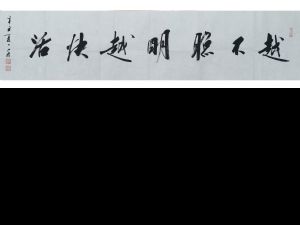 越不聪明越快活